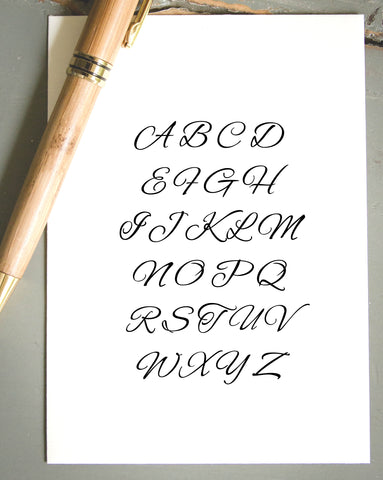 A B C D
E F G H
I J K L M
N O P Q
R S T U V
W X Y Z